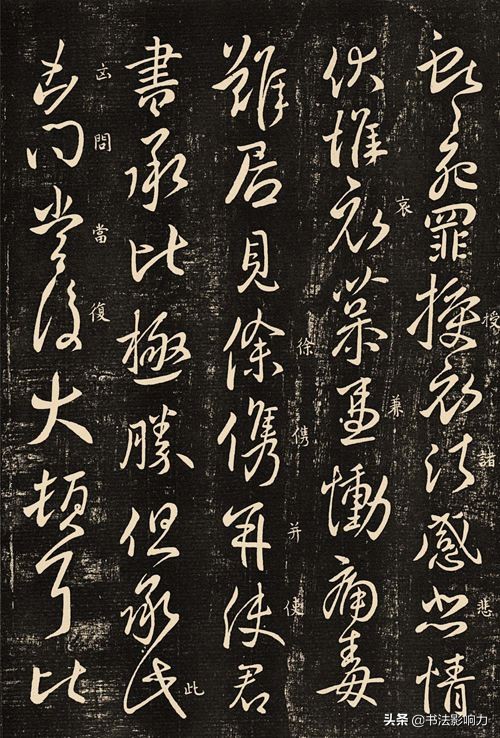 死罪授衣諸感悲情
授 諸 悲
伏惟哀慕兼慟痛毒
哀 兼
難居見徐儁并使君
徐 儁 并 使
書承比極勝但承此
此
凶問當復大頓耳比
凶 問 當 復
头条 @书法影响力